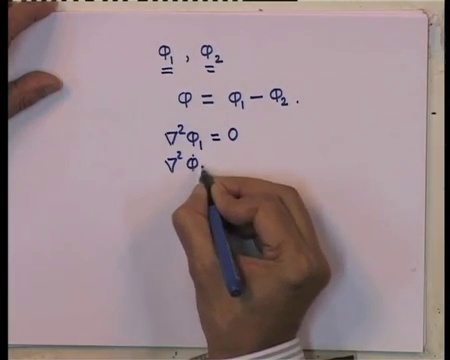 φ₁ , φ₂
φ = φ₁ − φ₂ .
∇²φ₁ = 0
∇²φ